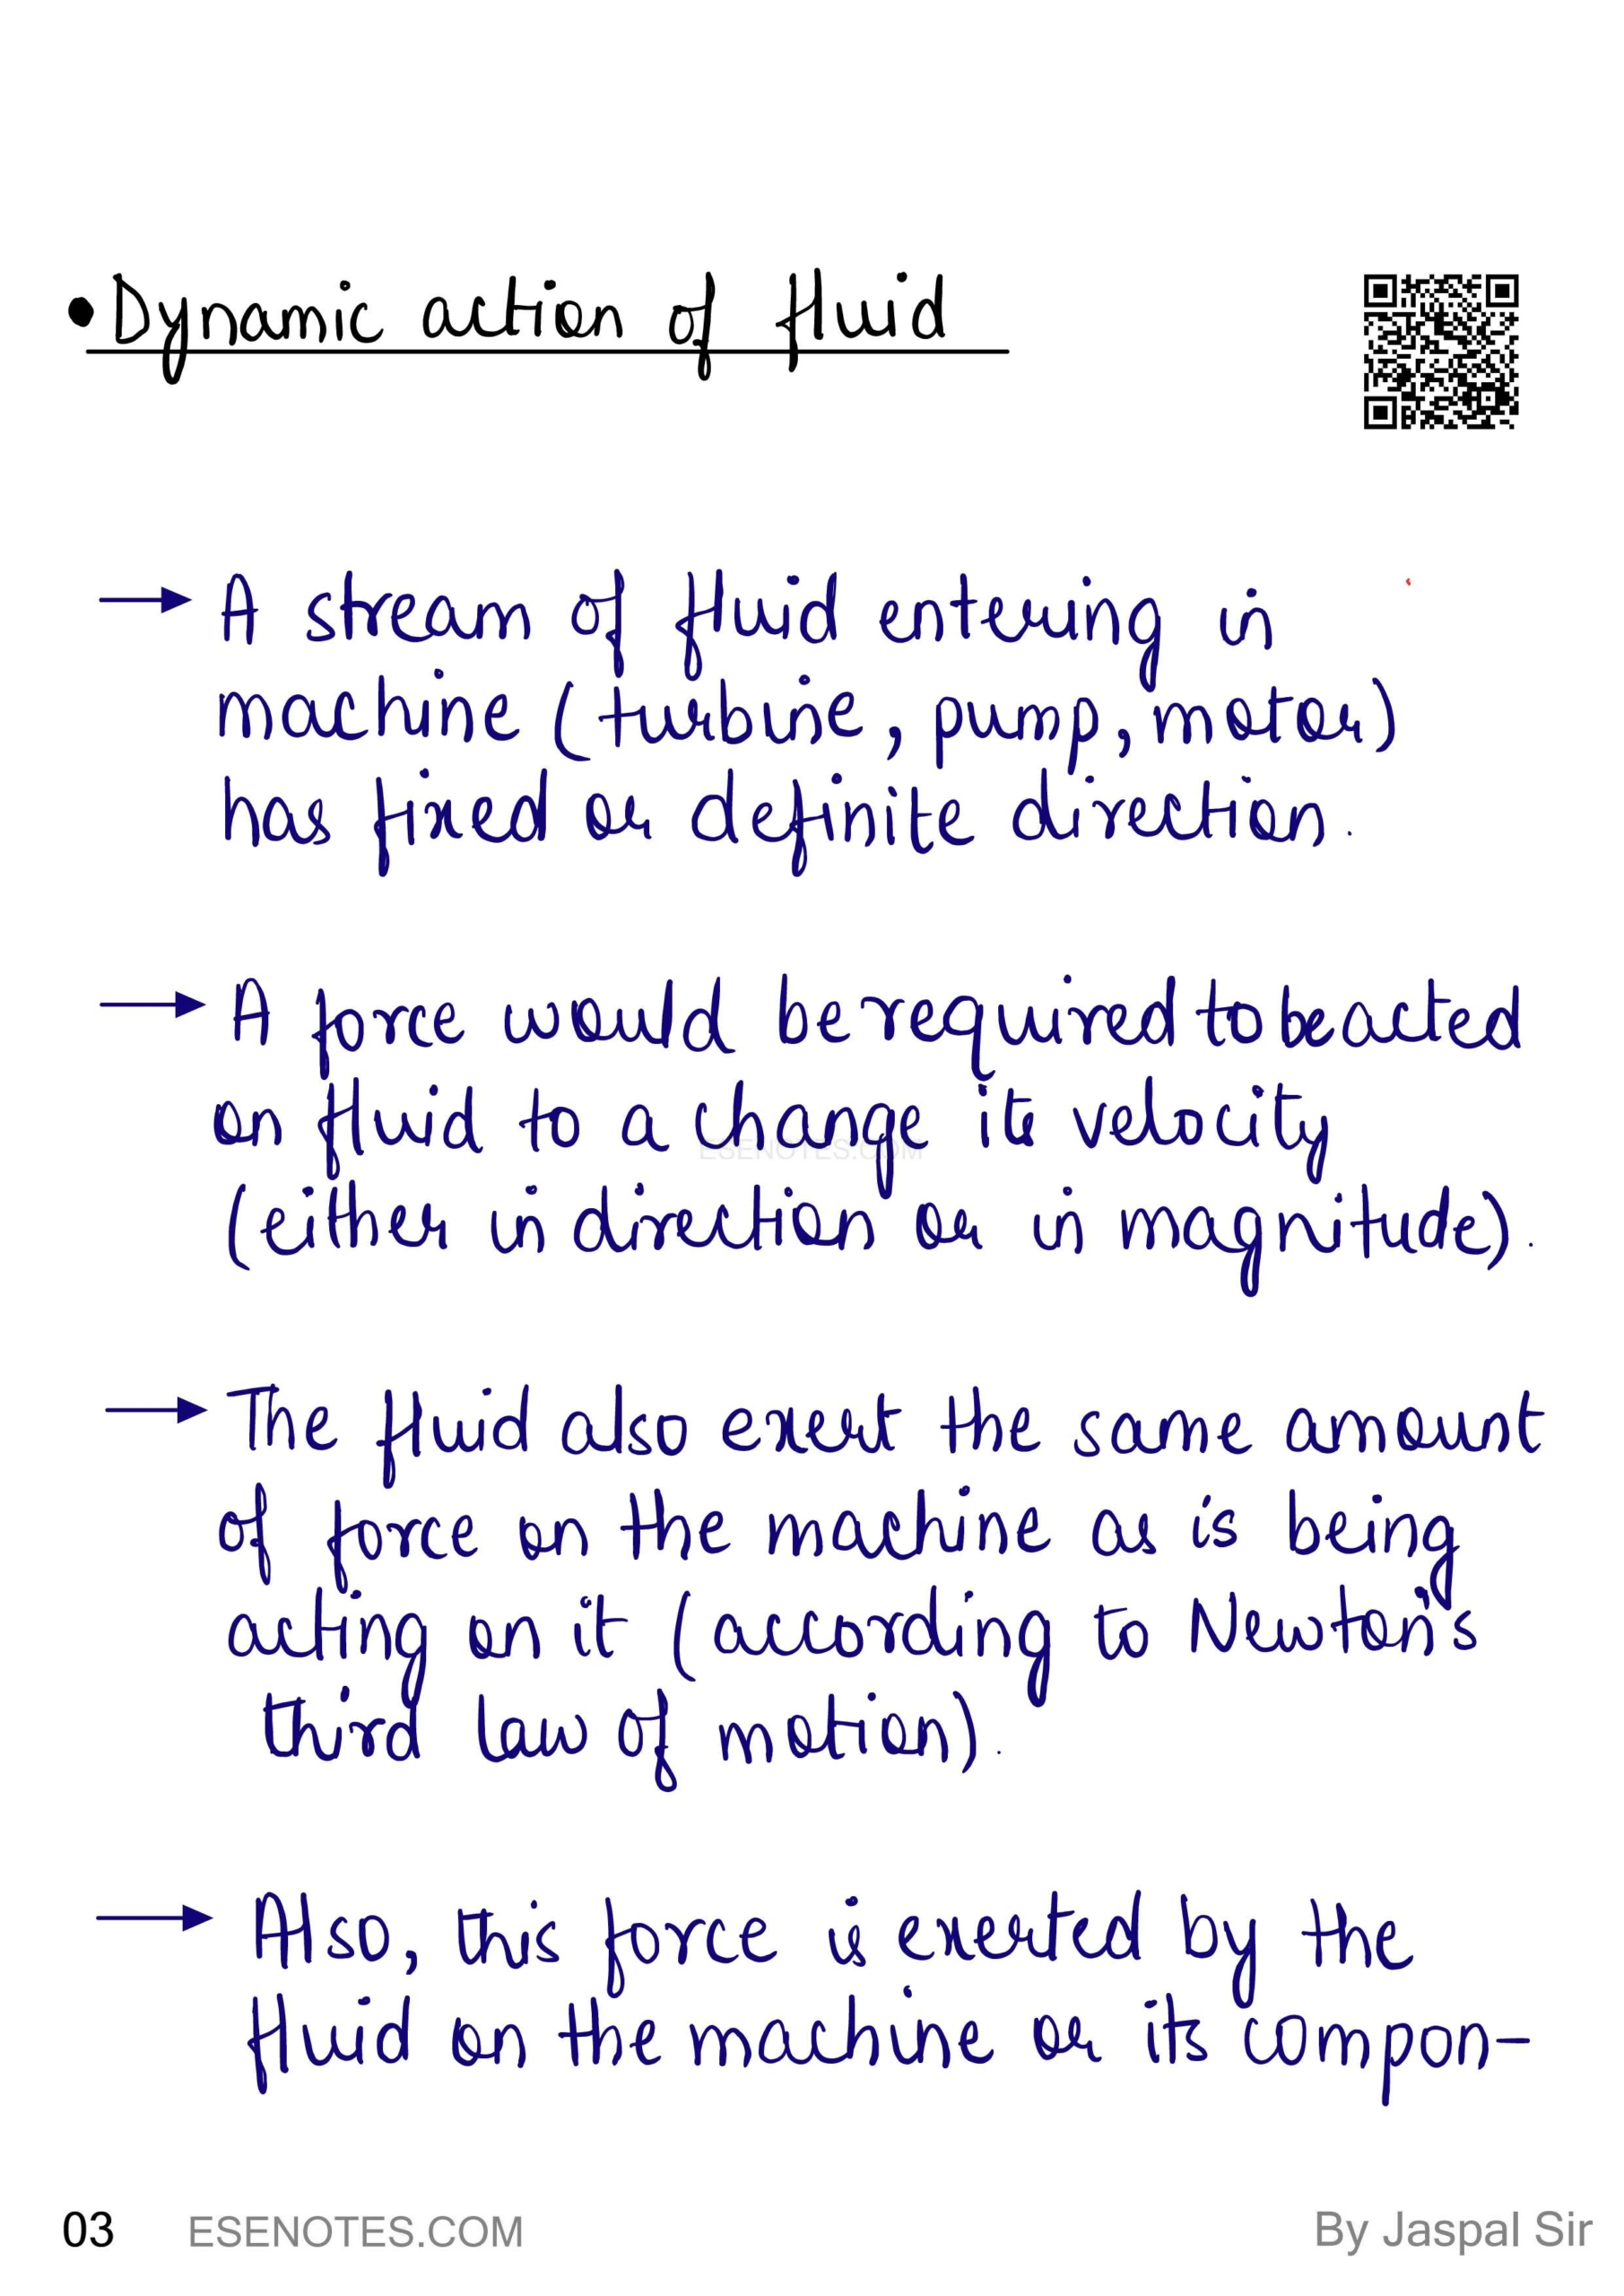 • Dynamic action of fluid
→ A stream of fluid entering in
machine (turbine, pump, motor)
has fixed or definite direction.
→ A force would be required to be acted
on fluid to a change its velocity
(either in direction or in magnitude).
→ The fluid also exert the same amount
of force on the machine as is being
acting on it (according to Newton's
third law of motion).
→ Also, this force is exerted by the
fluid on the machine or its compon-
ESENOTES.COM
03 ESENOTES.COM By Jaspal Sir